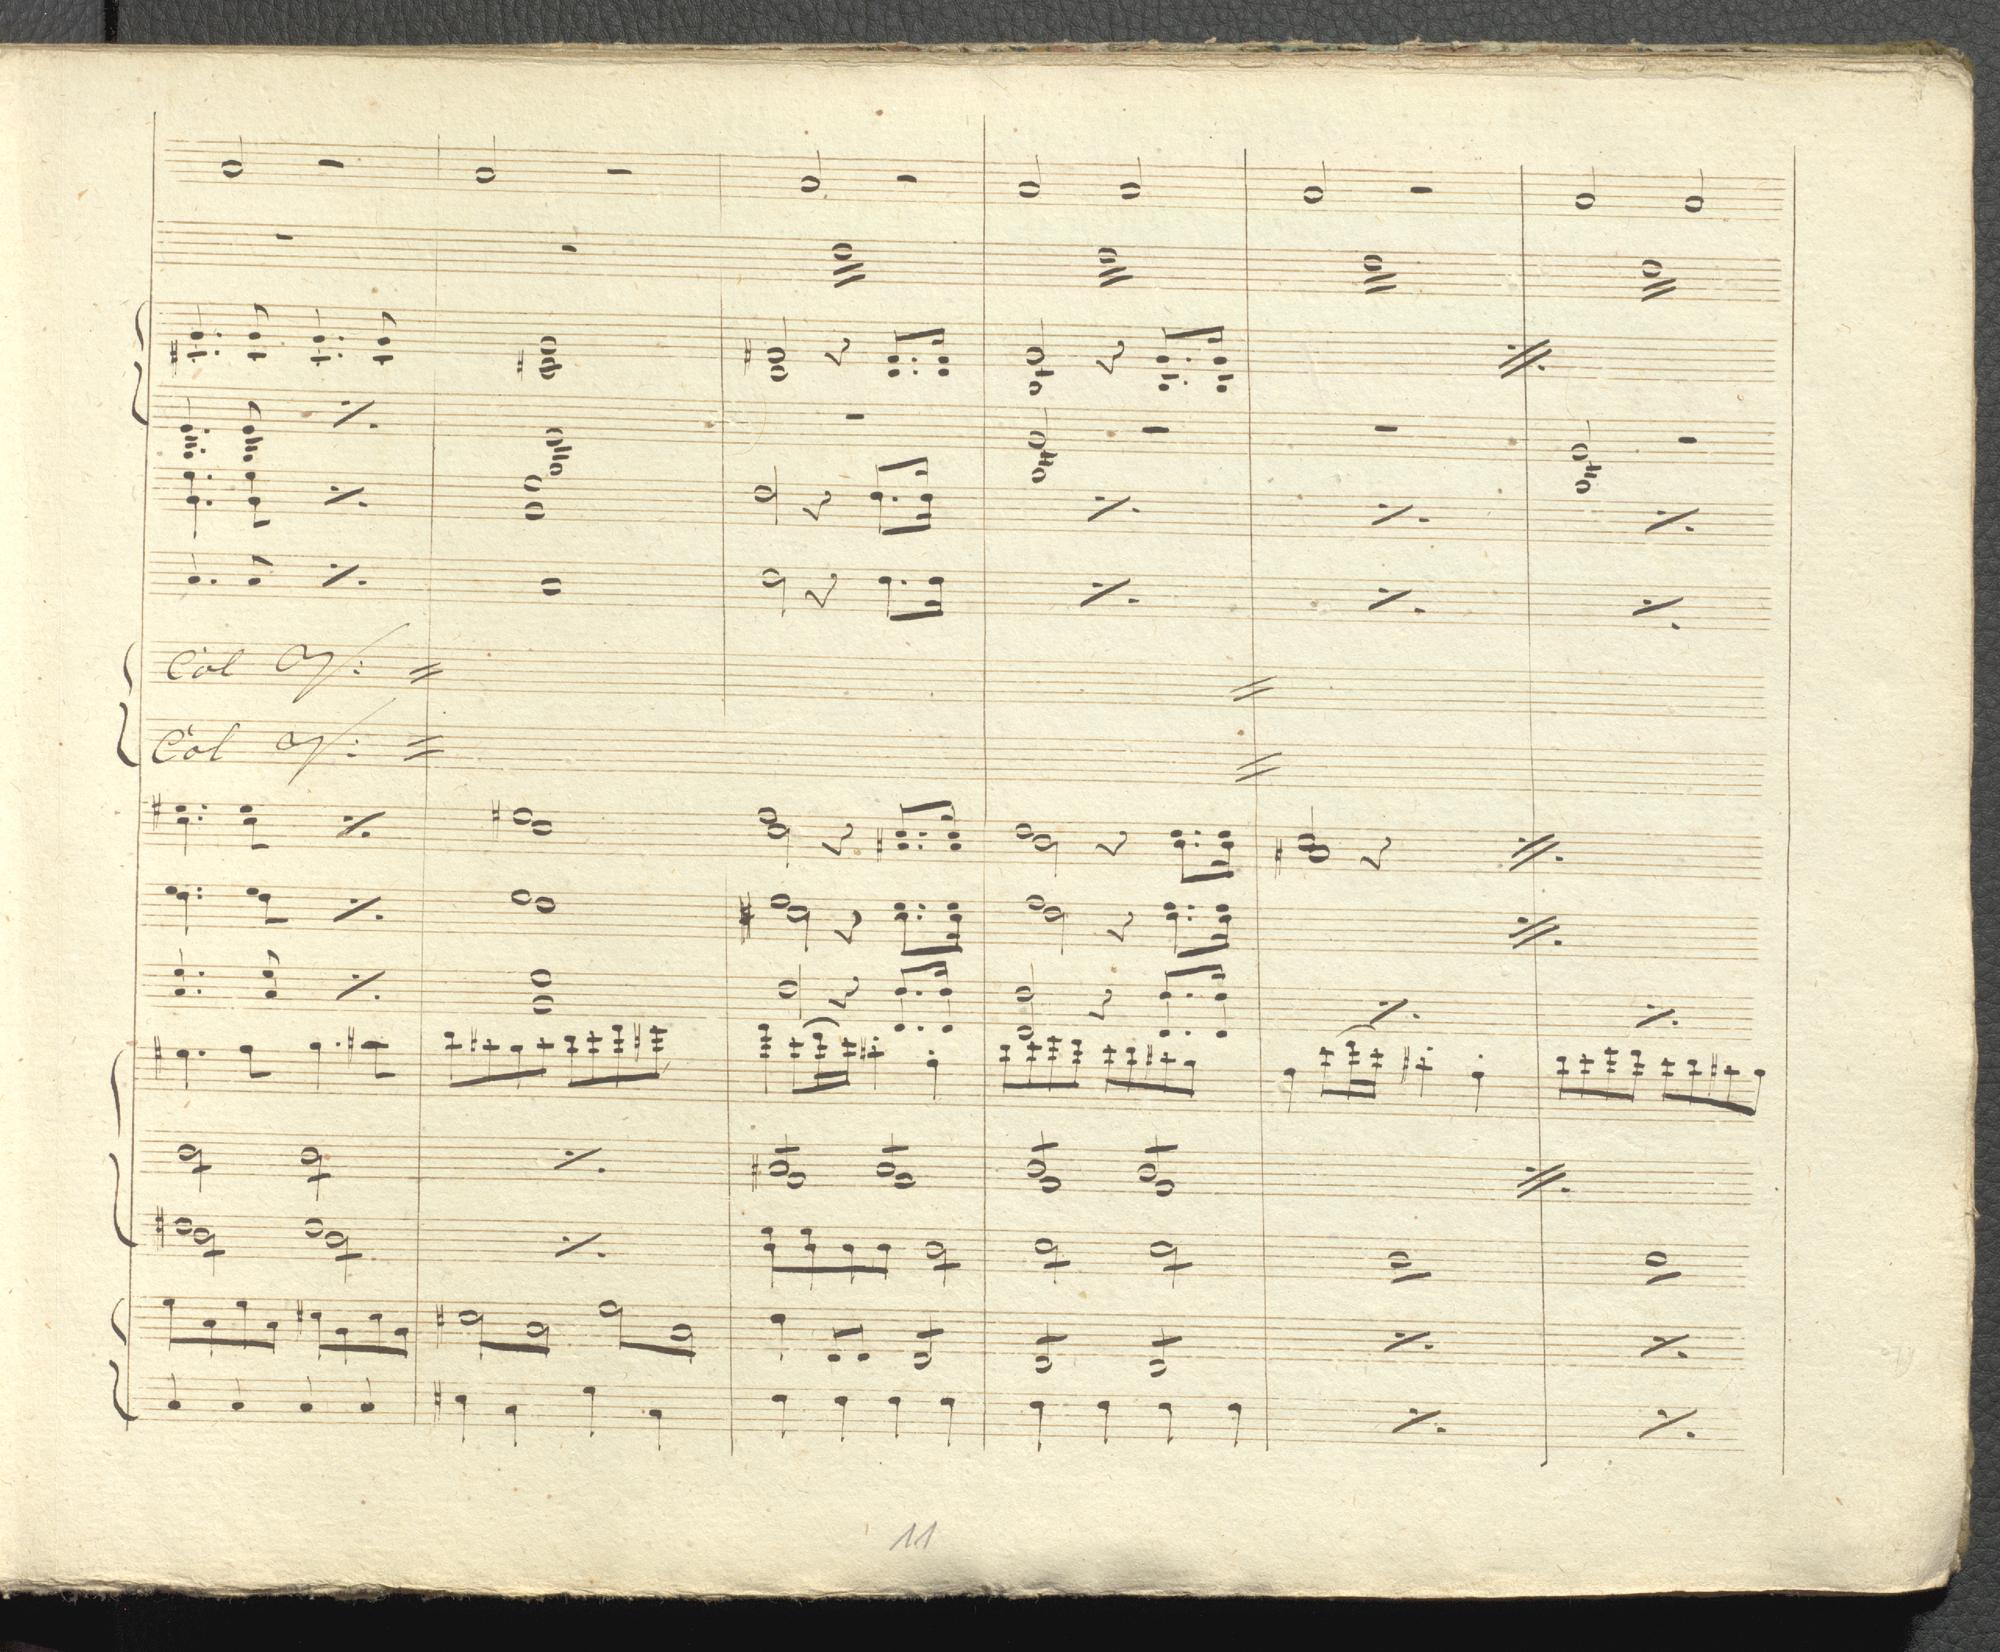 Col
Col
11